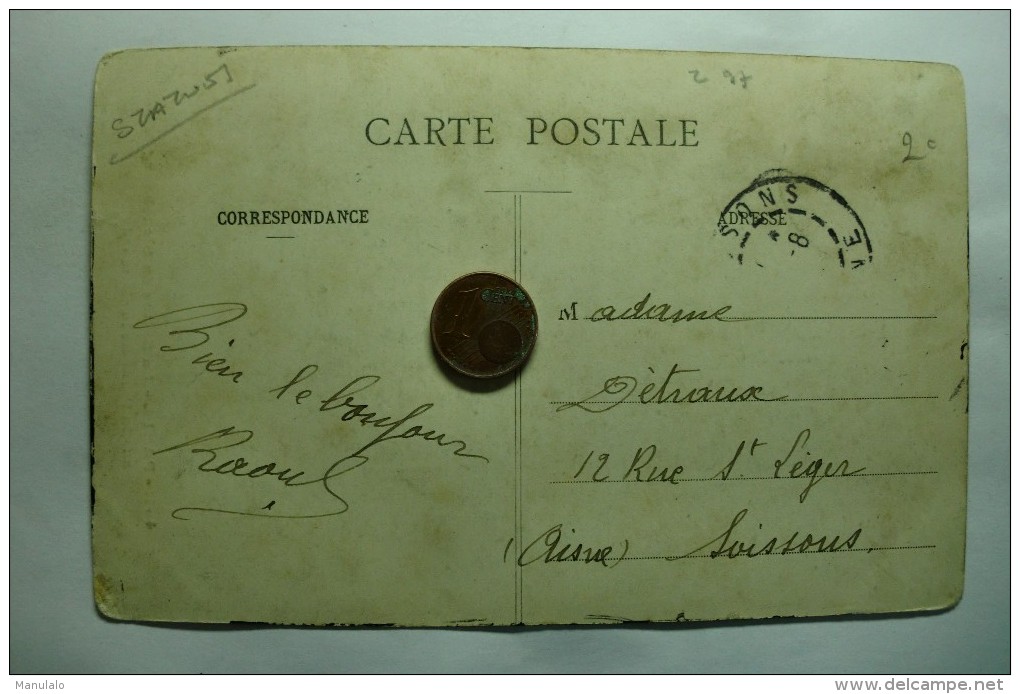 2 97
CARTE POSTALE
2c
CORRESPONDANCE
ADRESSE
SSONS
8
NE
Bien le bonjour
Raoul
Madame
Détraux
12 Rue St Léger
(Aisne) Soissons.
Manulalo
www.delcampe.net